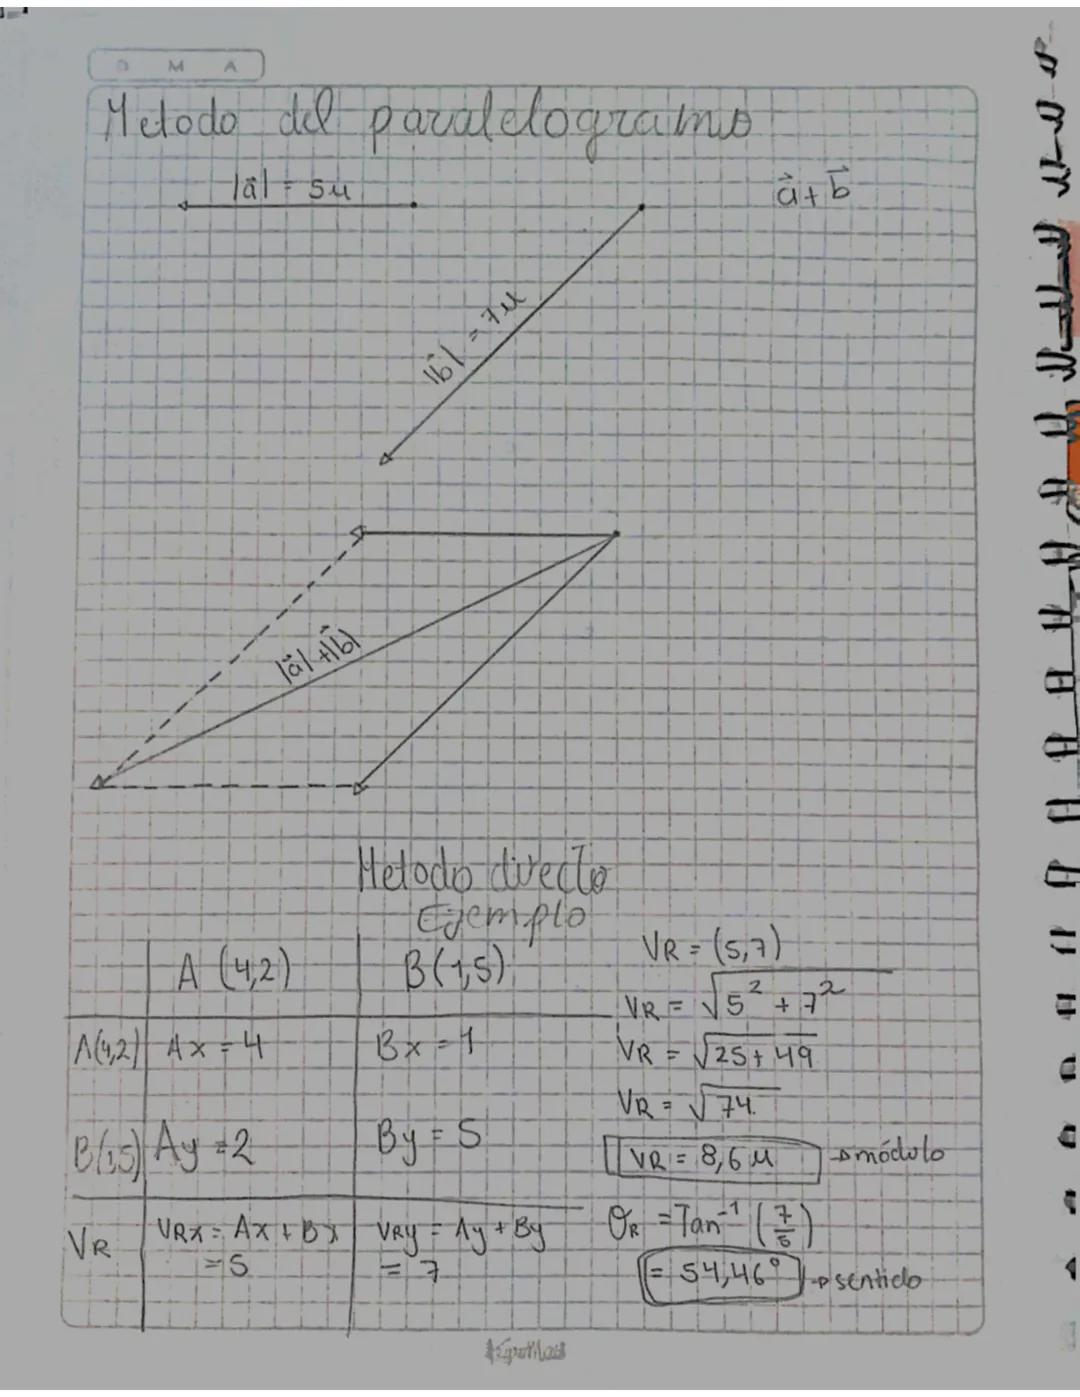 D M A
Metodo del paralelogramo
|a⃗| = 5u
a⃗ + b⃗
|b⃗| = 7u
|a⃗|+|b⃗|
Metodo directo
Ejemplo
A (4,2) B(1,5)
A(4,2) Ax = 4 Bx = 1
B(1,5) Ay = 2 By = 5
VR VRx = Ax + Bx VRy = Ay + By
= 5 = 7
VR = (5,7)
VR = √5² + 7²
VR = √25 + 49
VR = √74
VR = 8,6 u → módulo
θR = Tan⁻¹ (7/5)
= 54,46° → sentido